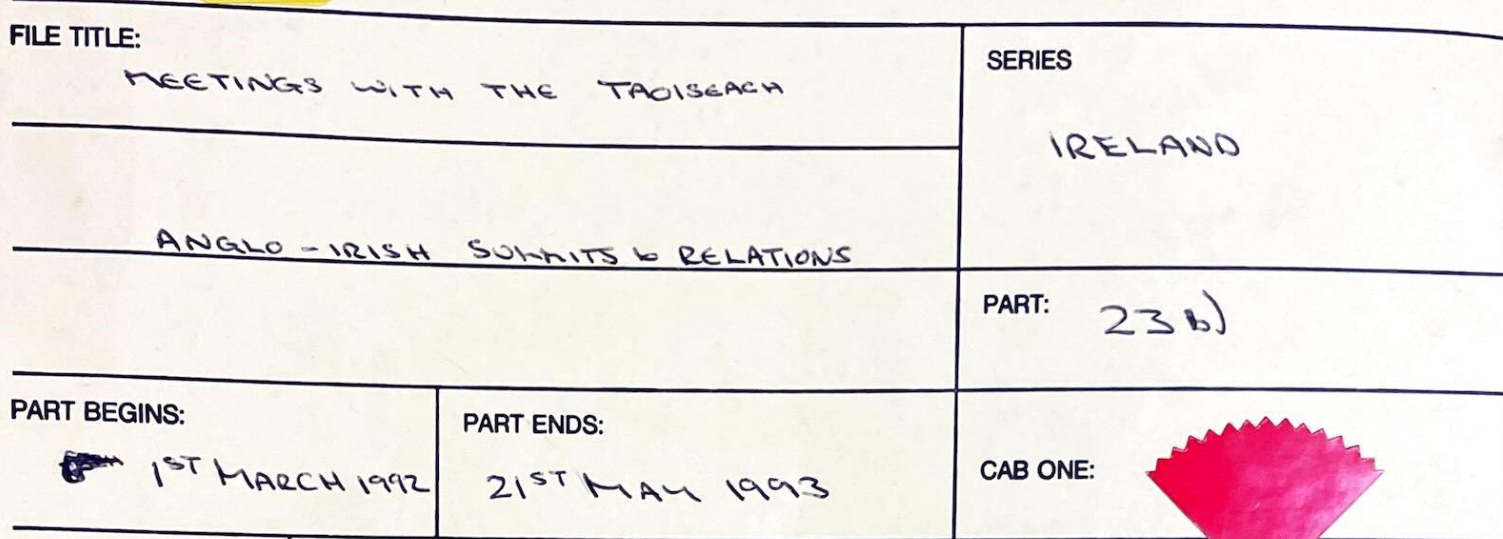 FILE TITLE:
MEETINGS WITH THE TAOISEACH
ANGLO-IRISH SUMMITS & RELATIONS
SERIES
IRELAND
PART: 23 b)
PART BEGINS:
1ST MARCH 1992
PART ENDS:
21ST MAY 1993
CAB ONE: